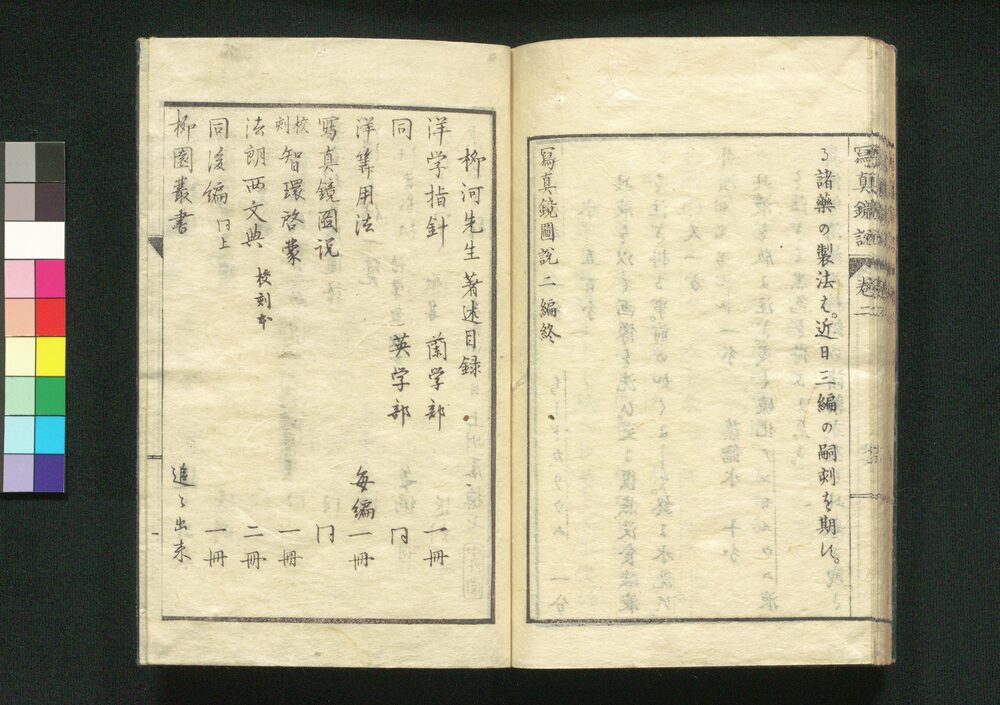 寫真鏡説
卷二
る諸藥の製法は。近日三編の嗣刻を期す。
寫真鏡圖説二編終
柳河先生著述目録
洋学指針 蘭学部 一冊
同 英学部 冂
洋筭用法 每編一冊
寫真鏡図説 冂
校刻 智環啓蒙 一冊
法朗西文典 校刻本 二冊
同後編 冂上 一冊
柳園叢書 追々出来